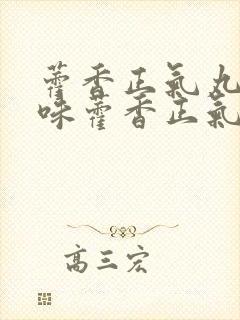 藿香正氣丸
味藿香正氣
高三宏